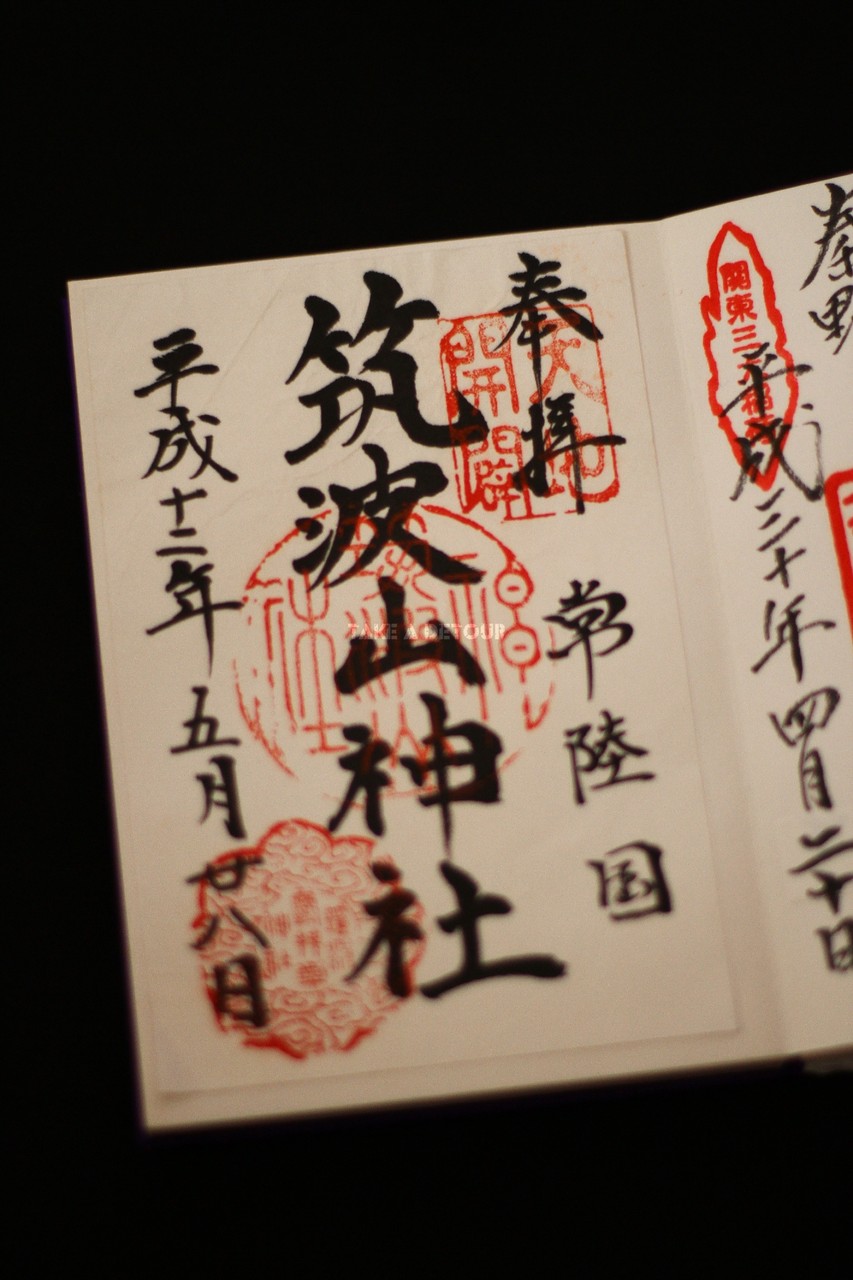 関東三
平成三十年四月二十日
奉拝
常陸国
天地
開闢
筑波山神社
平成十二年五月廿八日
TAKE A DETOUR